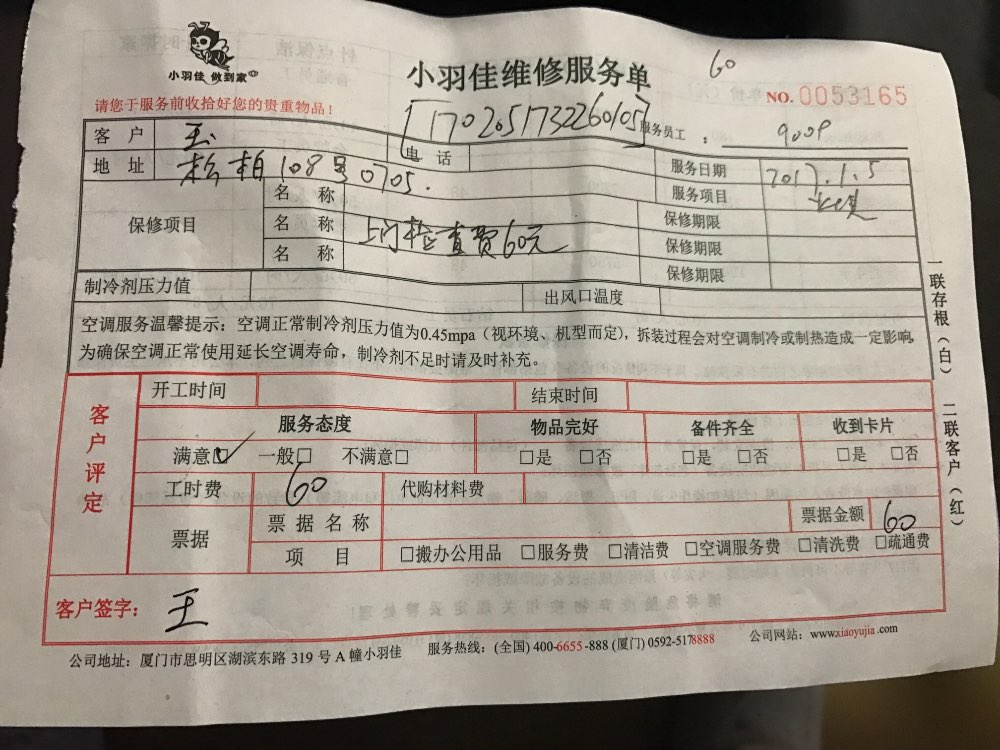 小羽佳 做到家
小羽佳维修服务单
60
NO. 0053165
请您于服务前收拾好您的贵重物品！
[1702051732260105]
服务员工：
客 户 王
电 话
地 址 松柏108号0705.
服务日期 2017.1.5
服务项目
保修项目
名 称
保修期限
名 称 上门检查费60元
保修期限
名 称
保修期限
制冷剂压力值
出风口温度
空调服务温馨提示：空调正常制冷剂压力值为0.45mpa（视环境、机型而定），拆装过程会对空调制冷或制热造成一定影响，
为确保空调正常使用延长空调寿命，制冷剂不足时请及时补充。
一联存根（白）
二联客户（红）
客户评定
开工时间
结束时间
服务态度 物品完好 备件齐全 收到卡片
满意☑ 一般□ 不满意□ □是 □否 □是 □否 □是 □否
工时费 60 代购材料费
票据
票 据 名 称
票据金额 60
项 目 □搬办公用品 □服务费 □清洁费 □空调服务费 □清洗费 □疏通费
客户签字： 王
公司地址：厦门市思明区湖滨东路 319 号 A 幢小羽佳 服务热线：(全国) 400-6655-888 (厦门) 0592-5178888 公司网站：www.xiaoyujia.com